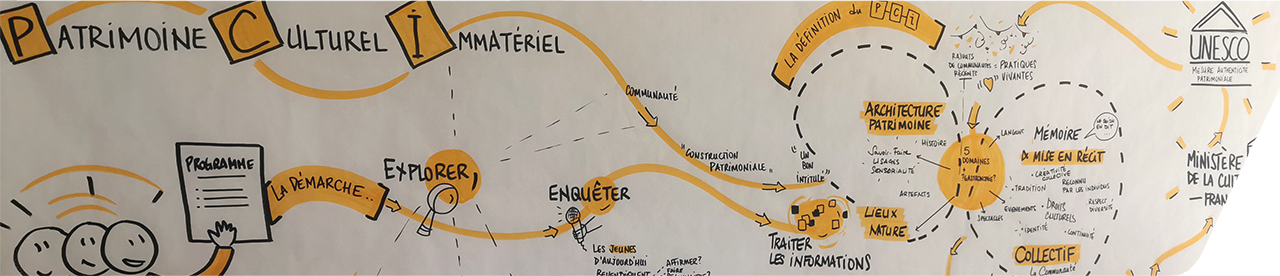 PATRIMOINE CULTUREL IMMATÉRIEL
PROGRAMME
LA DÉMARCHE..
EXPLORER,
ENQUÊTER
LES JEUNES
D'AUJOURD'HUI
AFFIRMER?
FAIRE
COMMUNAUTÉ
"CONSTRUCTION
PATRIMONIALE"
"UN
BON
INTITULÉ"
TRAITER
LES INFORMATIONS
LA DÉFINITION du PCI
RAJOUTS
DE COMMUNAUTÉS
RÉCENTE
= PRATIQUES
VIVANTES
ARCHITECTURE
PATRIMOINE
HISTOIRE
SAVOIR-FAIRE
USAGES
SENSORIALITÉ
ARTEFACTS
LIEUX
NATURE
5
DOMAINES
"GASTRONOMIE?"
LANGUE
MÉMOIRE
& MISE EN RÉCIT
CREATIVITÉ
COLLECTIVE
TRADITION
RECONNU
PAR LES INDIVIDUS
EVENEMENTS
SPECTACLES
DROITS
CULTURELS
RESPECT
DIVERSITÉ
IDENTITÉ
CONTINUITÉ
COLLECTIF
La Communauté
UNESCO
MESURE AUTHENTICITÉ
PATRIMONIALE
MINISTÈRE
DE LA CULT
FRAN